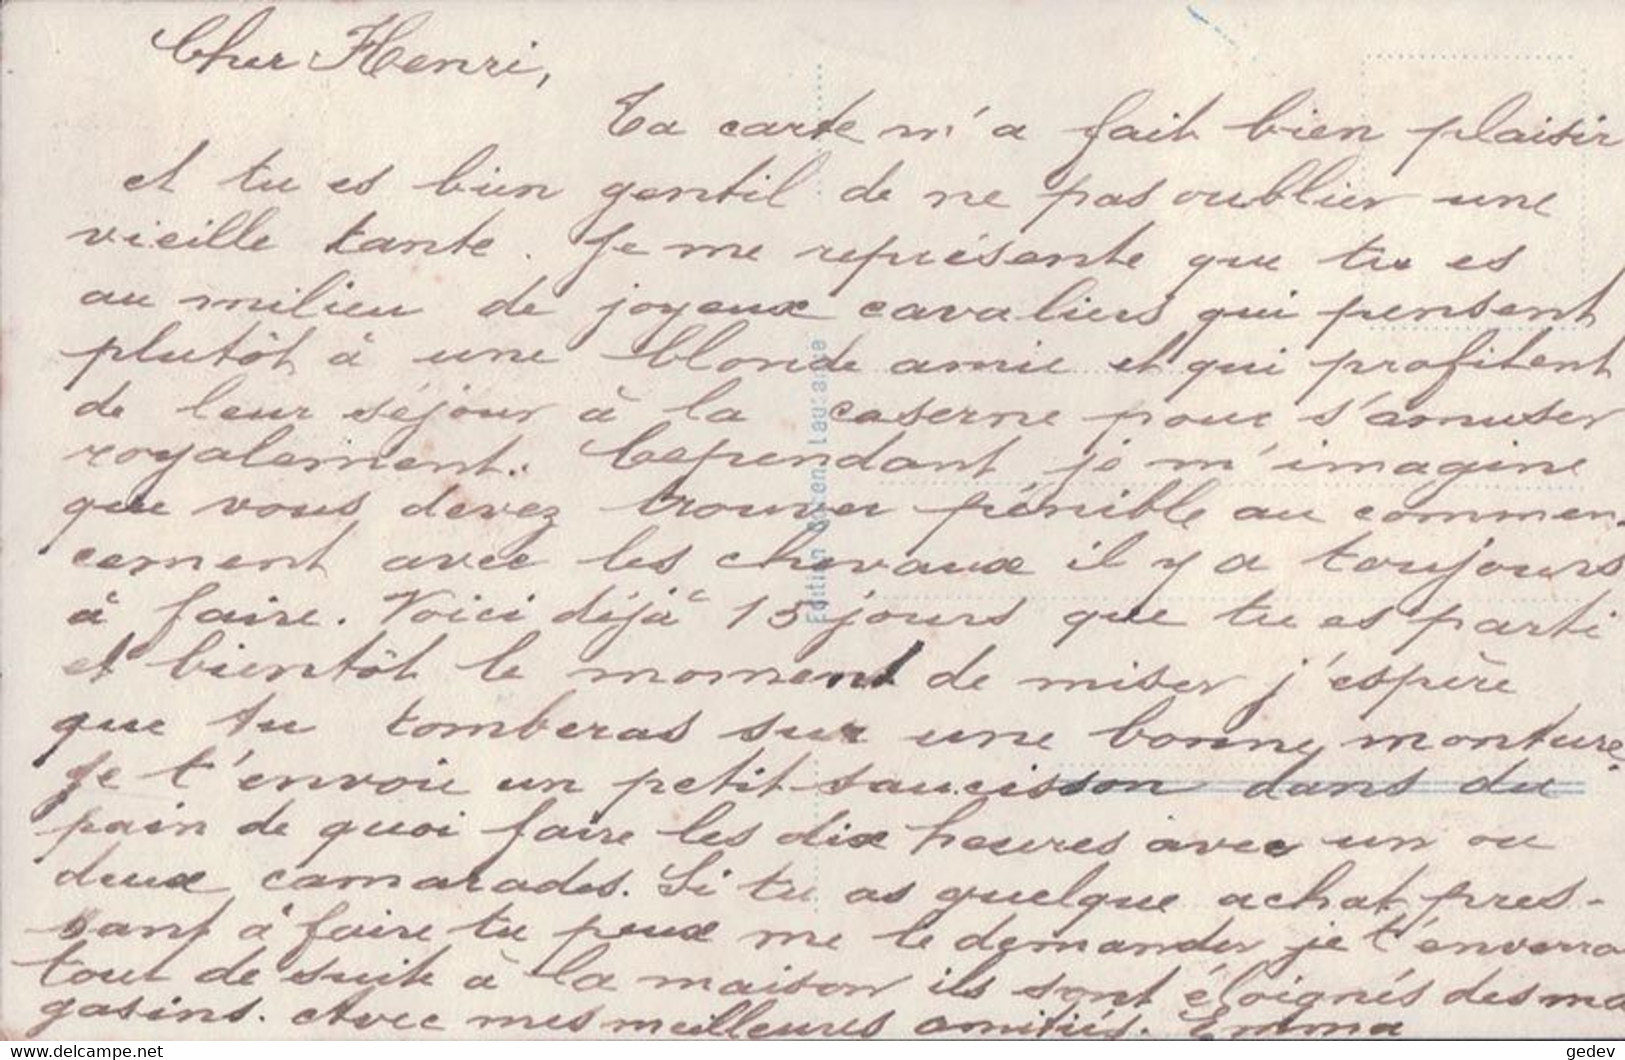 Cher Henri,
Ta carte m'a fait bien plaisir
et tu es bien gentil de ne pas oublier une
vieille tante. Je me représente que tu es
au milieu de joyeux cavaliers qui pensent
plutôt à une blonde amie et qui profitent
de leur séjour à la caserne pour s'amuser
royalement. Cependant je m'imagine
que vous devez trouver pénible au commen-
cement avec les chevaux il y a toujours
à faire. Voici déjà 15 jours que tu es parti
et bientôt le moment de miser j'espère
que tu tomberas sur une bonne monture.
Je t'envoie un petit saucisson dans du
pain de quoi faire les dix heures avec un ou
deux camarades. Si tu as quelque achat pres-
sant à faire tu peux me le demander je t'enverra
tout de suite à la maison ils sont éloignés des ma
gasins. Avec mes meilleures amitiés. Emma
Edition Lausanne
https://www.delcampe.net
gedev